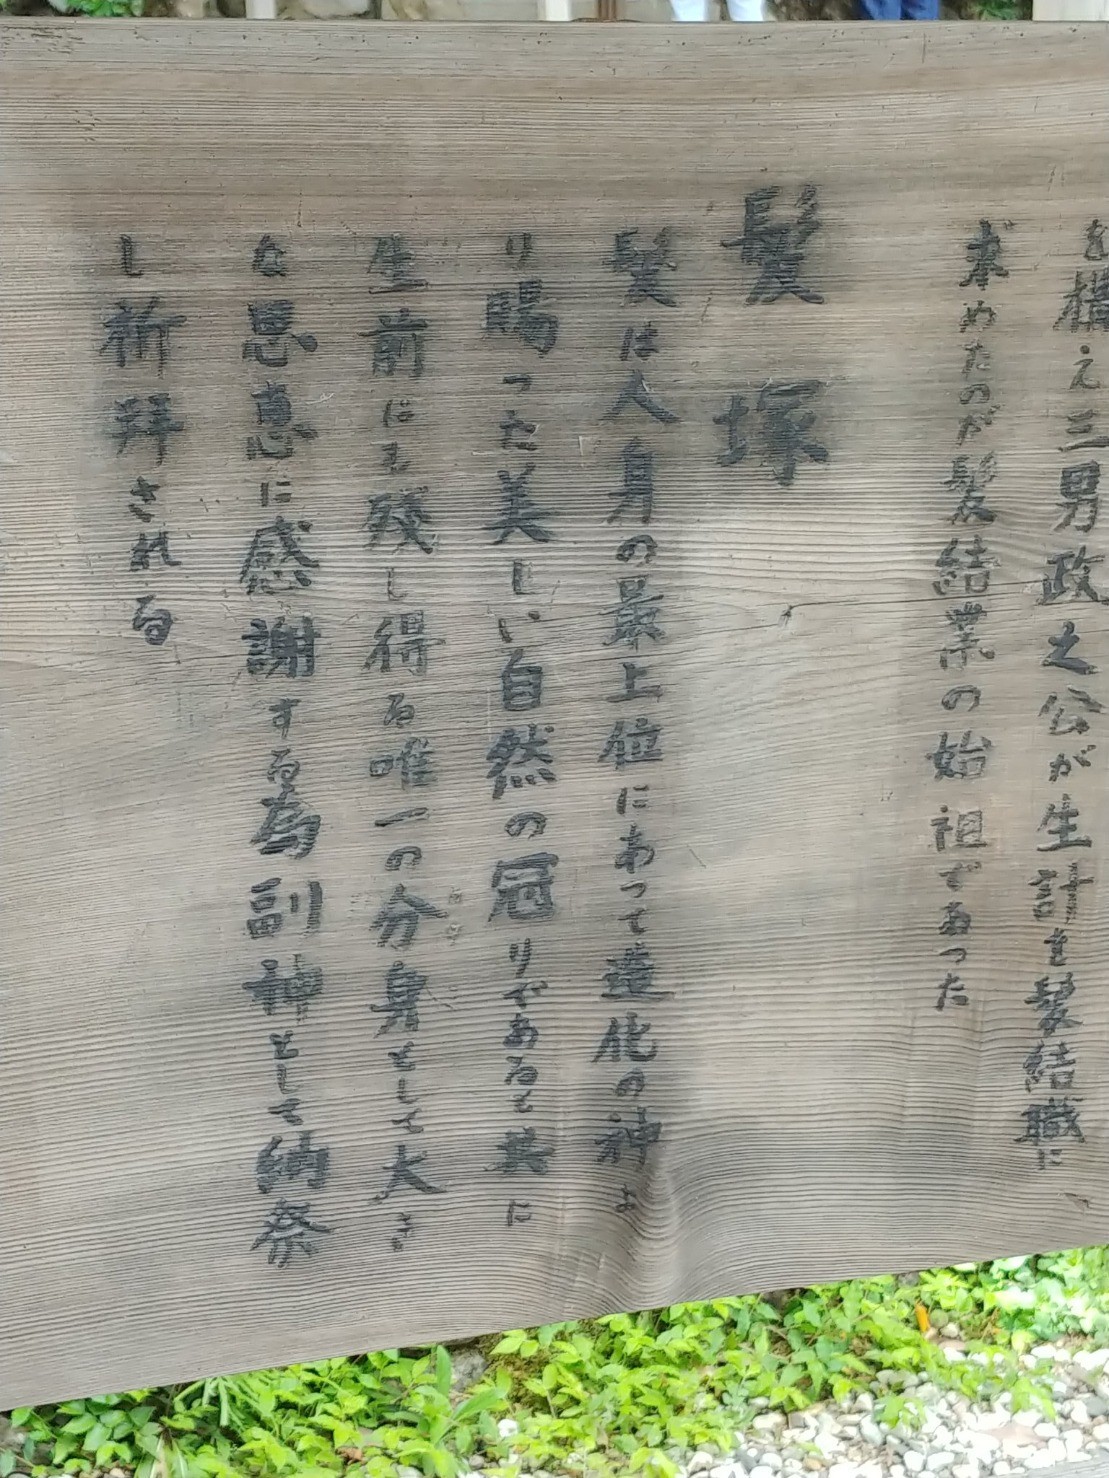 を構え三男政之公が生計を髪結職に
求めたのが髪結業の始祖であった
髪塚
髪は人身の最上位にあって造化の神よ
り賜った美しい自然の冠りであると共に
生前にも残し得る唯一の分身として大き
な恩恵に感謝する為副神として納祭
し祈拝される